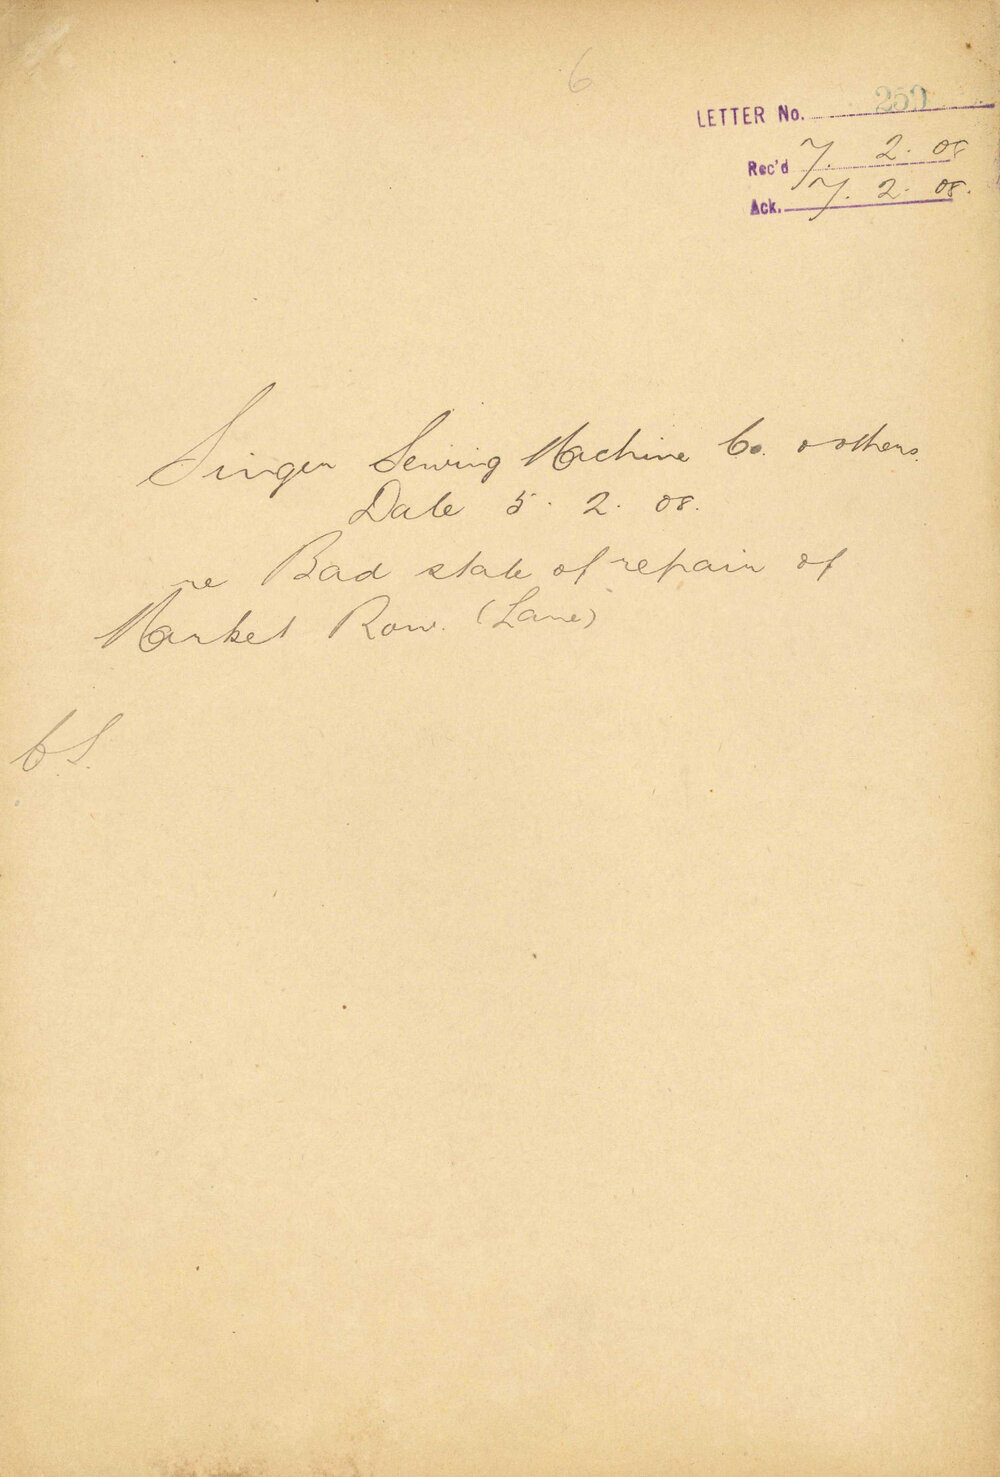 6
LETTER No. 259
Rec'd 7. 2. 08
Ack. 7. 2. 08.
Singer Sewing Machine Co. & others.
Date 5. 2. 08.
re Bad state of repair of
Market Row. (Lane)
C.S.